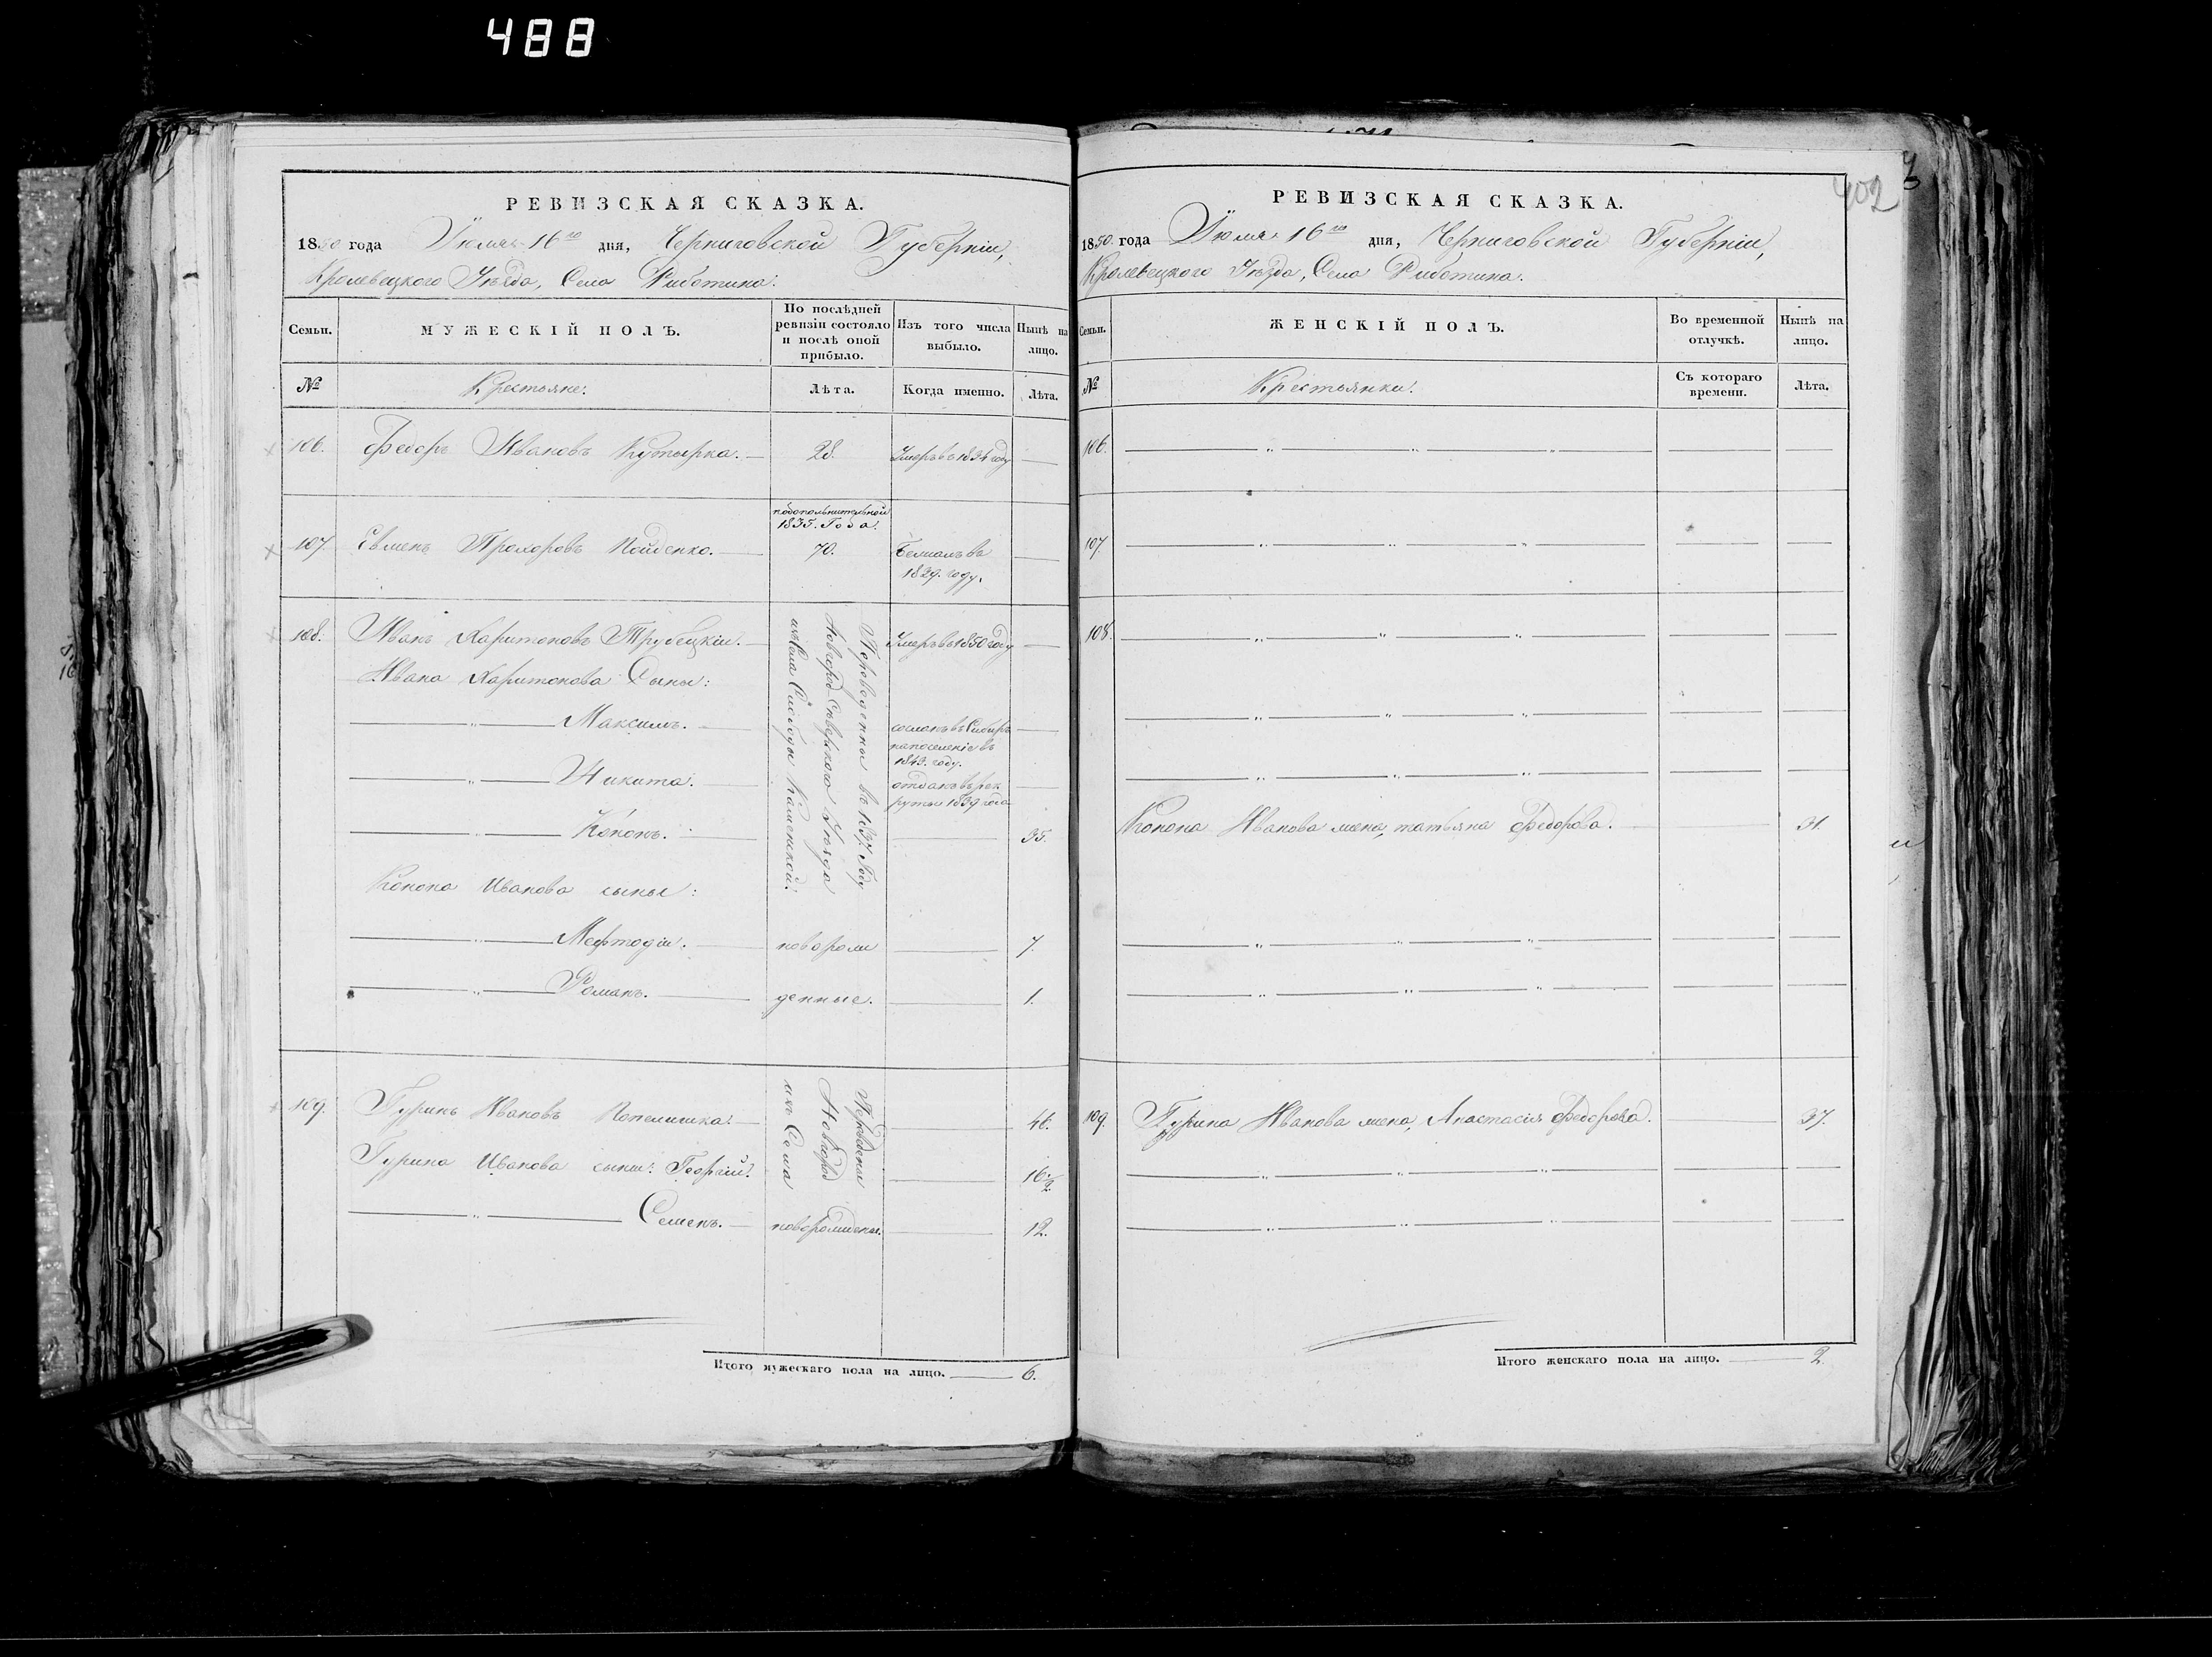 488
402
РЕВИЗСКАЯ СКАЗКА.
1850 года Іюля 16го дня, Черниговской Губерніи,
Кролевецкого Уѣзда, Села Риботина.
Семьи.
МУЖЕСКІЙ ПОЛЪ.
По послѣдней
ревизіи состояло
и послѣ оной
прибыло.
Изъ того числа
выбыло.
Нынѣ на
лицо.
№
Крестьяне:
Лѣта.
Когда именно.
Лѣта.
106. Федоръ Ивановъ 28. Умеръ в 1834 году
подополнительной
1835. Года.
107. Евменъ Прохоровъ 70. Бежалъ въ
1829. году.
108. Иванъ Харитоновъ Трубецкіи. Умеръ в 1850 году
Ивана Харитонова Сыны:
Переведенныи въ 1837. Году
Новгород Сѣверского Уѣзда
изъ Села Слободы Каменской.
Максимъ. сосланъ въ Сибирь
на поселеніе въ
1843. году.
Никита. отданъ въ рек
руты 1839 года
Кононъ. 35.
Конона Иванова сыны:
Мефтодіи. новорожд 7.
Романъ. денные. 1.
109. Гуринъ Ивановъ 41.
Переведены
Новгород
изъ Села
Гурина Иванова сыны: Георгіи. 16½
Семенъ. новорожденый. 12.
Итого мужескаго пола на лицо. 6.
РЕВИЗСКАЯ СКАЗКА.
1850. года Іюля 16го дня, Черниговской Губерніи,
Кролевецкого Уѣзда, Села Риботина.
Семьи.
ЖЕНСКІЙ ПОЛЪ.
Во временной
отлучкѣ.
Нынѣ на
лицо.
№
Крестьянки:
Съ котораго
времени.
Лѣта.
106.
107.
108.
Конона Иванова жена, татьяна Федорова. 31.
109. Гурина Иванова жена, Анастасія Федорова. 37.
Итого женскаго пола на лицо. 2.